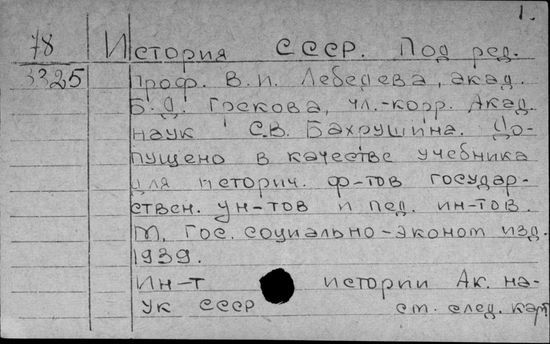 1.
78 История СССР. Под ред.
3325 проф. В.И. Лебедева, акад.
Б.Д. Грекова, чл.-корр. Акад.
наук С.В. Бахрушина. До-
пущено в качестве учебника
для историч. ф-тов государ-
ствен. ун-тов и пед. ин-тов.
М, Гос. социально-эконом изд.
1939.
Ин-т истории Ак. на-
ук СССР см. след. карт